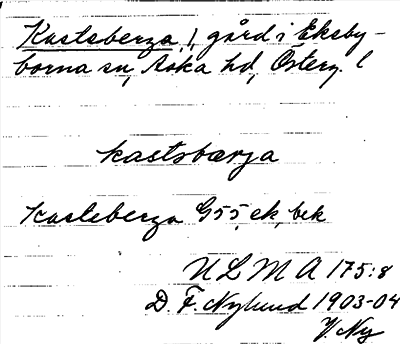 Kasteberga, 1, gård i Eksby-
borna sn, Aska hd, Österg. l
kastsbærja
Kasteberga G55, ek, bek
ULMA 175:8
D. F. Nylund 1903-04
V. Ny